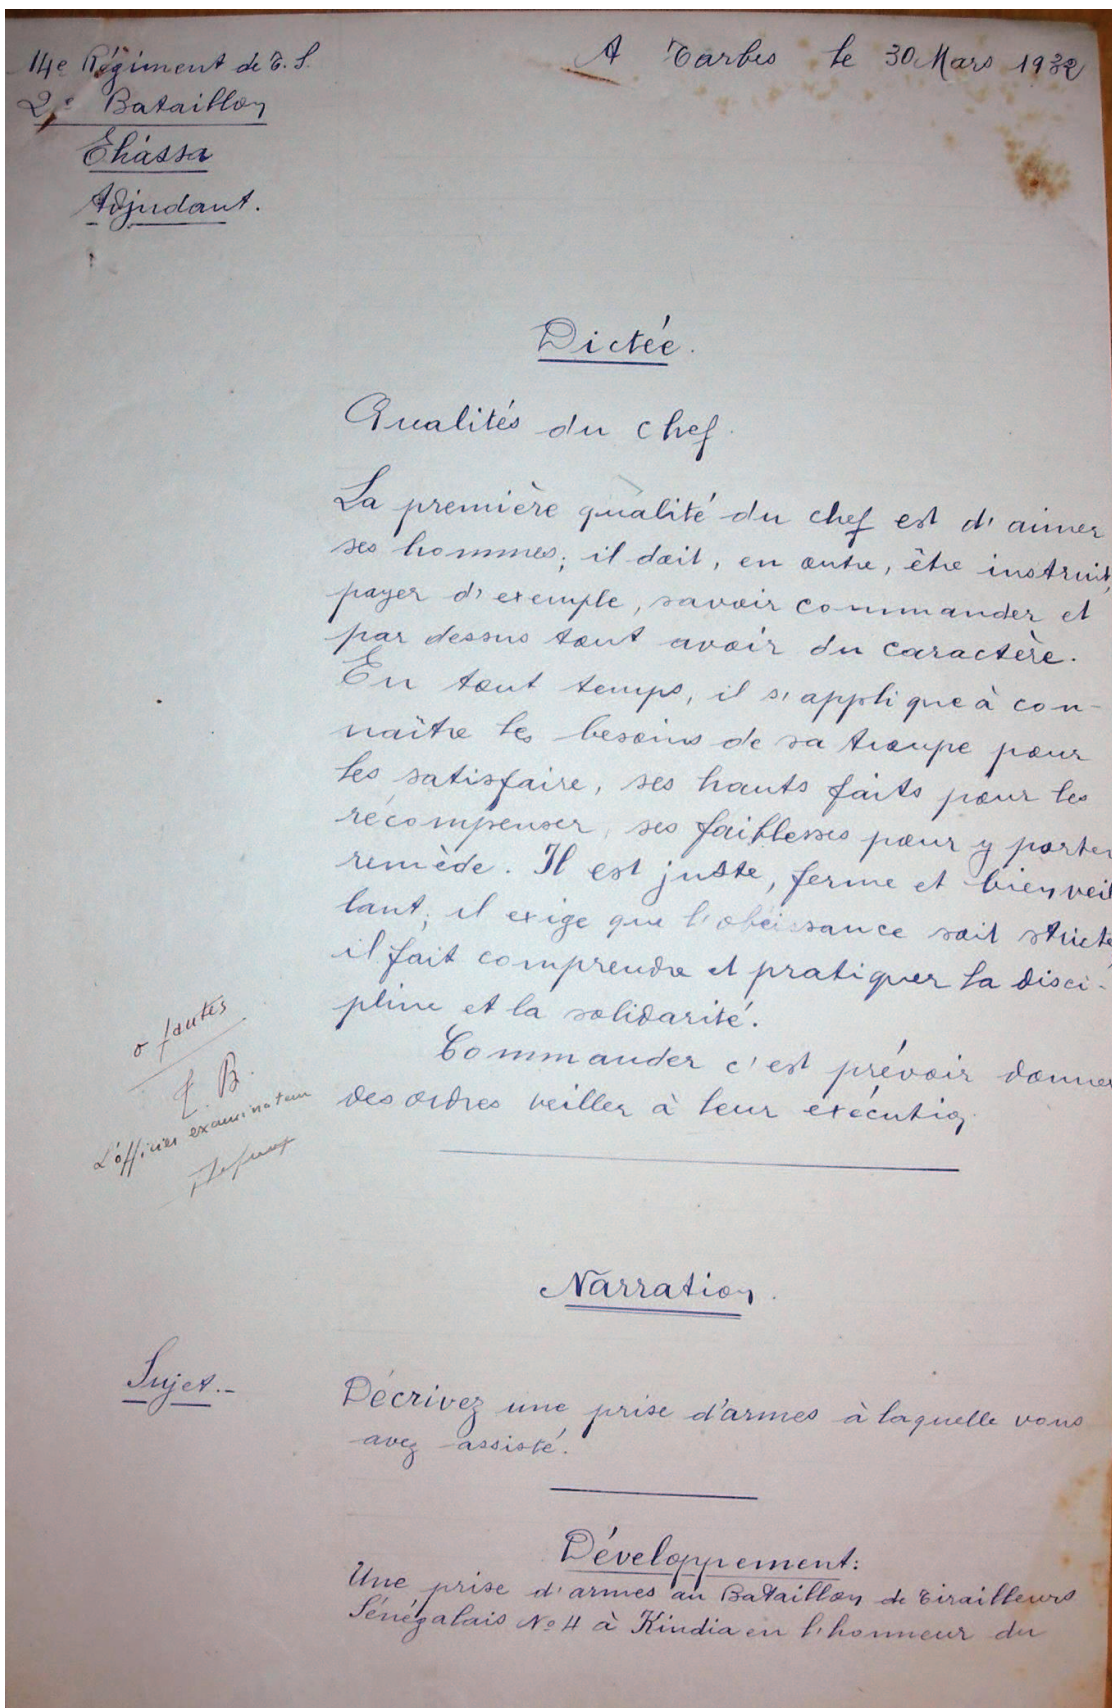 14e Régiment de T. S.
A Tarbes le 30 Mars 1932
2e Bataillon
Ehássa
Adjudant.
Dictée.
Qualités du chef.
La première qualité du chef est d'aimer
ses hommes; il doit, en outre, être instruit,
payer d'exemple, savoir commander et
par dessus tout avoir du caractère.
En tout temps, il s'applique à con-
naître les besoins de sa troupe pour
les satisfaire, ses hauts faits pour les
récompenser, ses faiblesses pour y porter
remède. Il est juste, ferme et bienveil
lant; il exige que l'obéissance soit stricte
il fait comprendre et pratiquer la disci-
pline et la solidarité.
Commander c'est prévoir donner
des ordres veiller à leur exécution
0 fautes
T. B.
L'officier examinateur
Narration.
Sujet.-
Décrivez une prise d'armes à laquelle vous
avez assisté.
Développement:
Une prise d'armes au Bataillon de Tirailleurs
Sénégalais No 4 à Kindia en l'honneur du